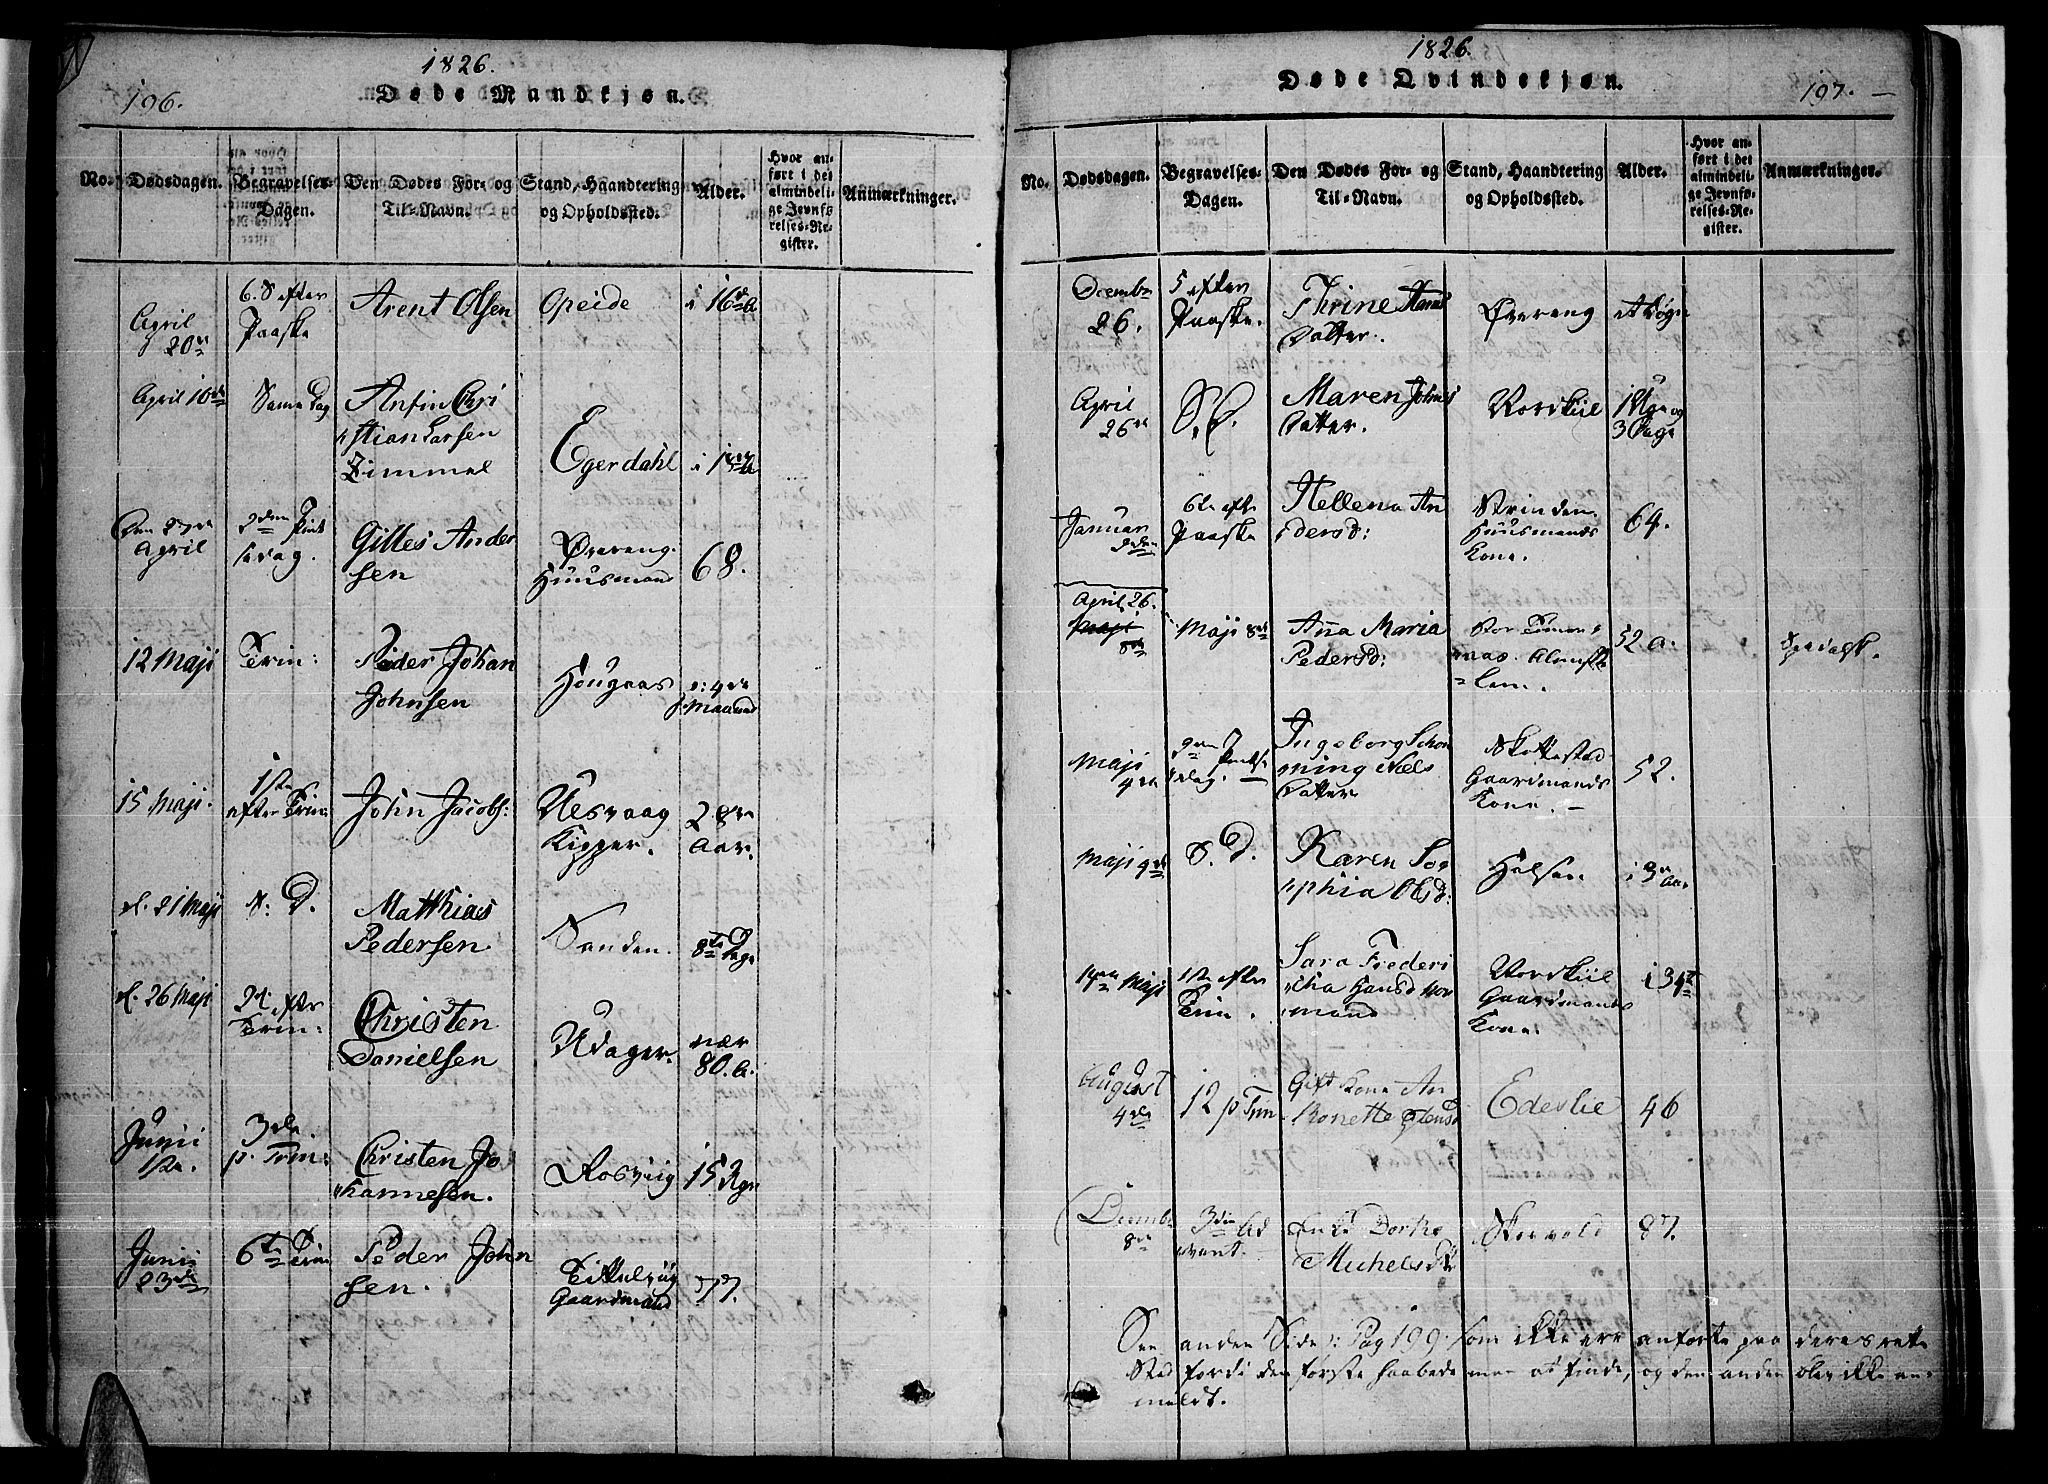 1826.
196.
Døde Mandkjøn.
No.
Dødsdagen.
Begravelses-
Dagen.
Den Dødes For- og
Til-Navn.
Stand, Haandtering
og Opholdssted.
Alder.
Hvor an-
ført i det
almindeli-
ge Jevnfø
relses-Re-
gister.
Anmærkninger.
April
20de
6. S efter
Paaske
Arent Olsen
Opeide
April 10de
Samedag
Anfin Chri
stian Larsen
Zimmel
Egerdahl
Den 27de
April
2den Pint
sedag.
Gilles Ander
sen
Øvereng
Huusmand
68.
12 Maji
Trin:
Peder Johan
Johnsen
Hougaas
4de
Maaned
15 Maji.
1ste
efter Trin:
John Jacobs:
Nesvaag
28de
Aar.
d. 21 Maji
S: D.
Matthias
Pedersen
Sanden.
8te Dage
d. 26 Maji
2t efter
Trin:
Christen
Danielsen
nær
80. A.
Junii
1ste.
3de
p. Trin:
Christen Jo
hannesen.
15 Uger
Junii
23de
6te Trin
Peder John
sen.
Gaardmand
77.
1826.
Døde Qvindekjøn.
197.
No.
Dødsdagen.
Begravelses-
Dagen.
Den Dødes For- og
Til-Navn.
Stand, Haandtering
og Opholdssted.
Alder.
Hvor an-
ført i det
almindeli-
ge Jevnfø-
relses-Re-
gister.
Anmærkninger.
Decembr
26.
5 efter
Paaske.
Thrine Hans
Datter.
Øvereng
et Døgn
April
26de
S. D.
Maren Johns
Datter.
Nordskiil
1 Uge og
3 Dage
Januar
2den
6te eft
Paaske
Hellena An
dersd:
Strinden
Huusmands
Kone.
64.
April 26.
Maji
8de
Maji 8de
Anna Maria
Pedersd:
52 a:
Spedalsk.
Maji
4de
2den Pintse
dag.
Ingeborg Schon
ning Niels
Datter
Skottestad
Gaardmands
Kone.
52.
Maji 9de
S. D.
Karen So
phia Olsd:
14de Maji
1ste efter
Trin.
Sara Frederi
cha Hansd Nor
mand
Nordskiil
Gaardmands
Kone
August
4de
12 p Trin
Gift Kone An
Edeslie
46
Decembr
8de
3die Ad
vent.
Dorthe
Michelsd
Skorvold
87.
See anden Side: Pag 199. som ikke ere anførte paa deres rette
Sted fordi den første haabede man at finde, og den anden blev ikke an
meldt.